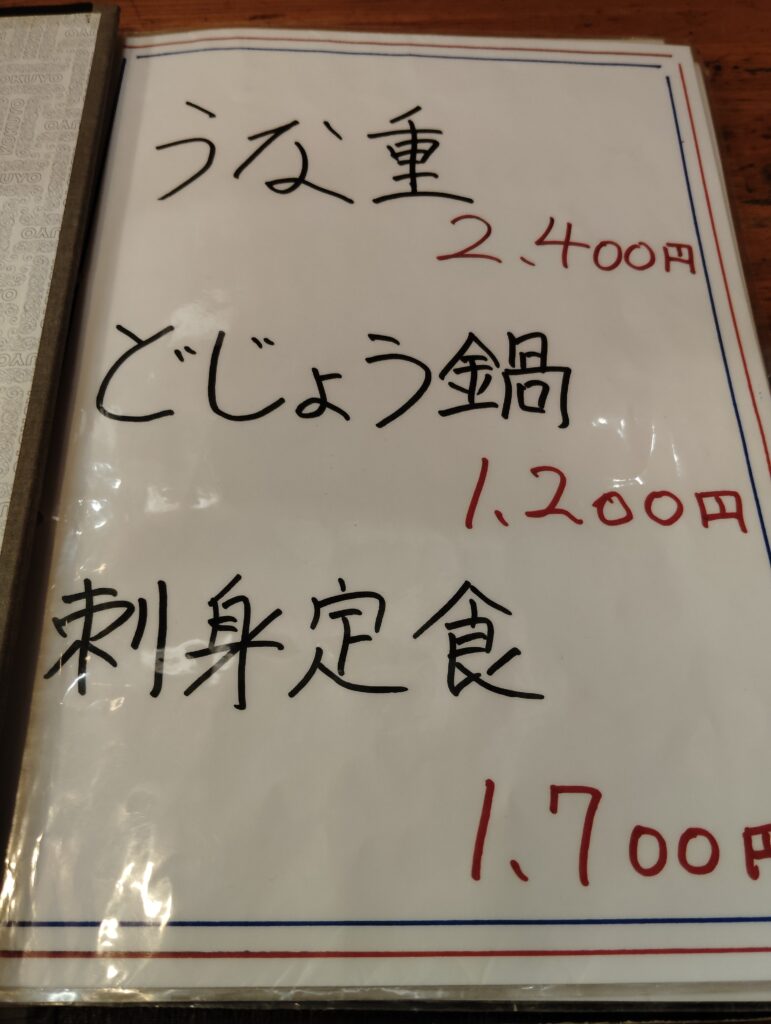 うな重
2、400円
どじょう鍋
1、200円
刺身定食
1、700円